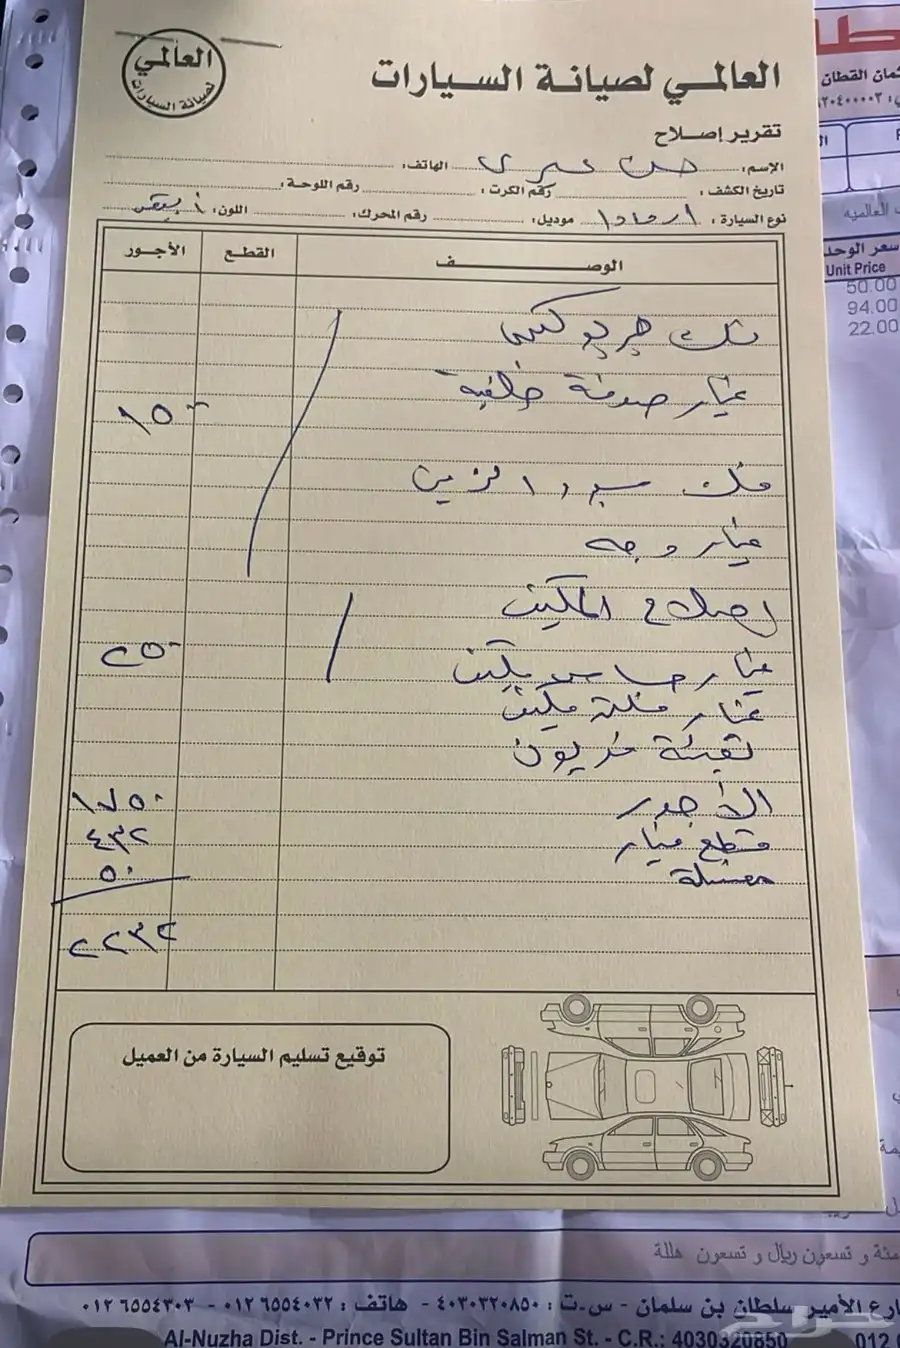 العالمي
لصيانة السيارات
العالمي لصيانة السيارات
تقرير إصلاح
الإسم: حسن عسيري الهاتف:
تاريخ الكشف: رقم الكرت: رقم اللوحة:
نوع السيارة: ارمادا موديل: رقم المحرك: اللون: أبيض
الوصف القطع الأجور
فك جربوكس
غيار صوفة خلفية
١٥٠٠
فك سير و الزيت
غيار وجه
اصلاح المكيف
غيار حساس مكيف
٢٥٠
غيار فلتر مكيف
تعبئة فريون
الأجور ١٧٥٠
قطع غيار ٤٣٢
مغسلة ٥٠
٢٢٣٢
توقيع تسليم السيارة من العميل
كمان القطان
٩٢٠٤٠٠٠٠٣
العالميه
سعر الوحد
Unit Price
50.00
94.00
22.00
مئة و تسعون ريال و تسعون هللة
ارع الأمير سلطان بن سلمان - س.ت : ٤٠٣٠٣٢٠٨٥٠ - هاتف : ٠١٢٦٥٥٤٠٣٢ - ٠١٢٦٥٥٤٣٠٣
Al-Nuzha Dist. - Prince Sultan Bin Salman St. - C.R.: 4030320850
012
حراج